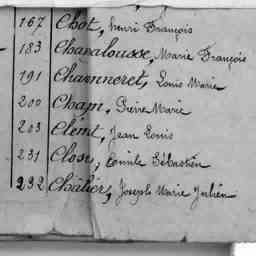 167 Chot, henri François
183 Chavalousse, Marie François
191 Channneret, Louis Marie
200 Chapin, Pierre Marie
203 Clémt, Jean Louis
231 Émile Sébastien
232 Châtier, Joseph Marie Julien